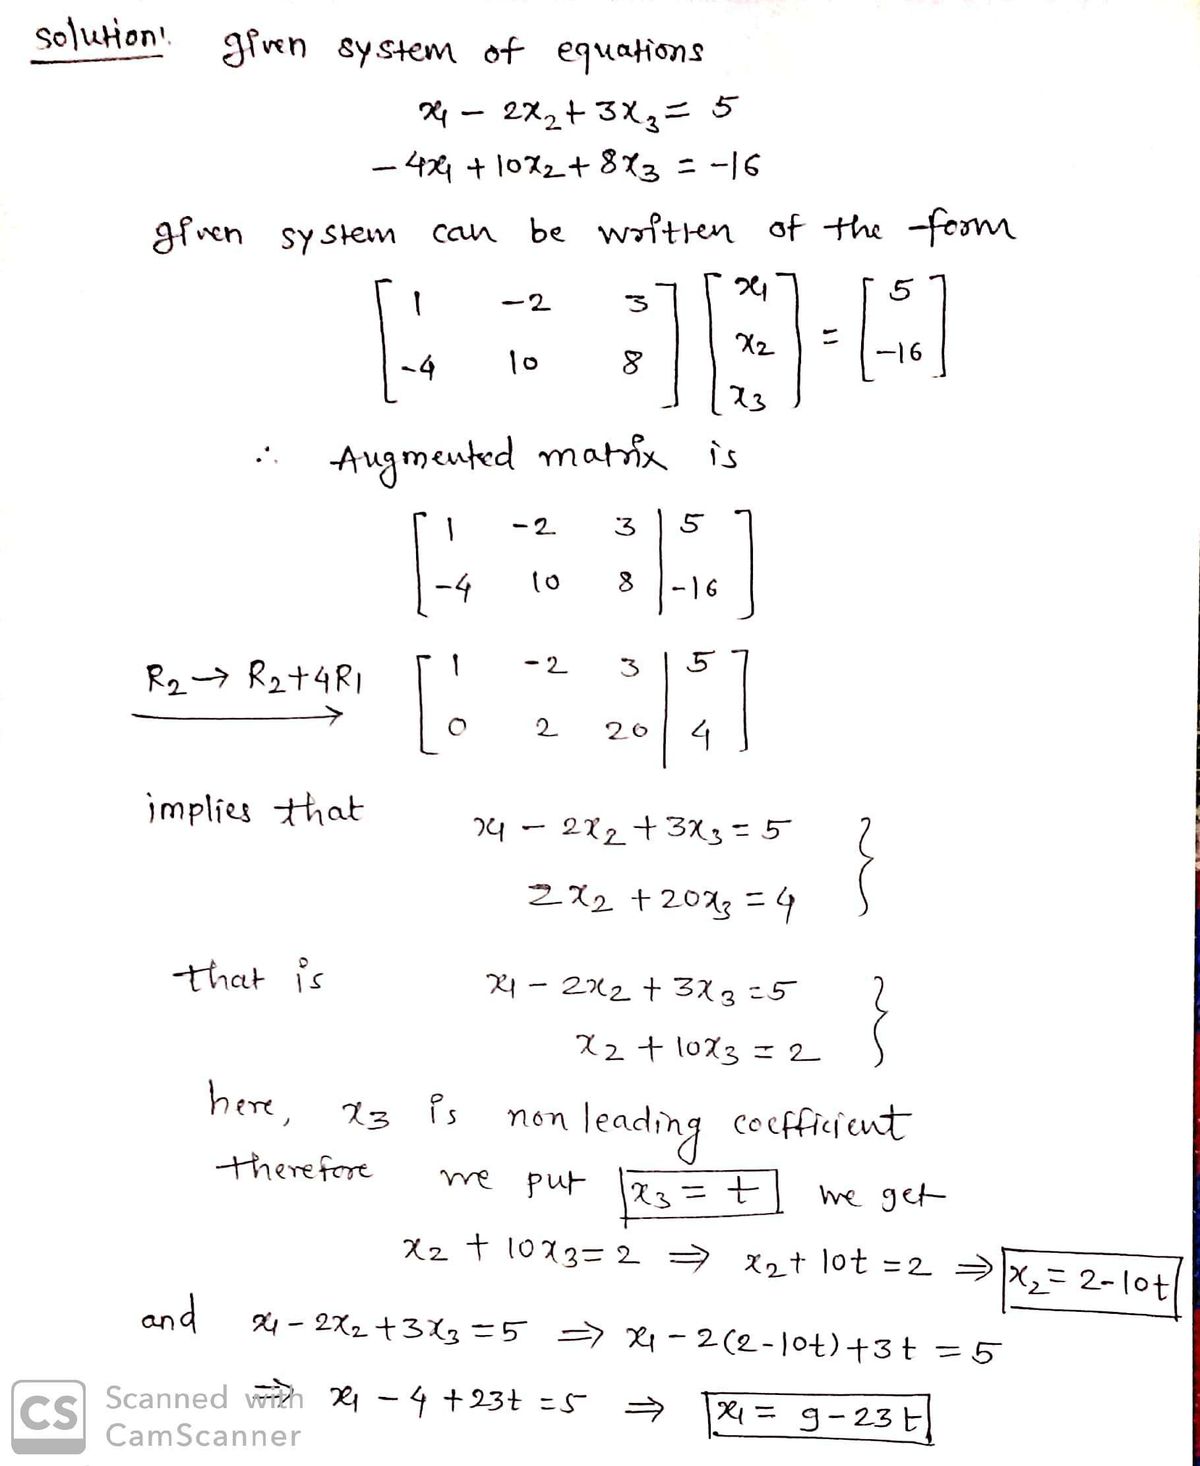 solution:  given system of equations
x1 - 2x2 + 3x3 = 5
- 4x1 + 10x2 + 8x3 = -16
given system can be written of the form
[ 1 -2 3 ] [ x1 ] = [ 5 ]
[ -4 10 8 ] [ x2 ] [ -16 ]
[ x3 ]
∴ Augmented matrix is
[ 1 -2 3 | 5 ]
[ -4 10 8 | -16 ]
R2 → R2+4R1 [ 1 -2 3 | 5 ]
[ 0 2 20 | 4 ]
implies that x1 - 2x2 + 3x3 = 5 }
2x2 + 20x3 = 4
that is x1 - 2x2 + 3x3 = 5 }
x2 + 10x3 = 2
here, x3 is non leading coefficient
therefore we put x3 = t we get
x2 + 10x3 = 2 ⇒ x2 + 10t = 2 ⇒ x2 = 2-10t
and x1 - 2x2 + 3x3 = 5 ⇒ x1 - 2(2-10t) + 3t = 5
⇒ x1 - 4 + 23t = 5 ⇒ x1 = 9-23t
CS Scanned with
CamScanner